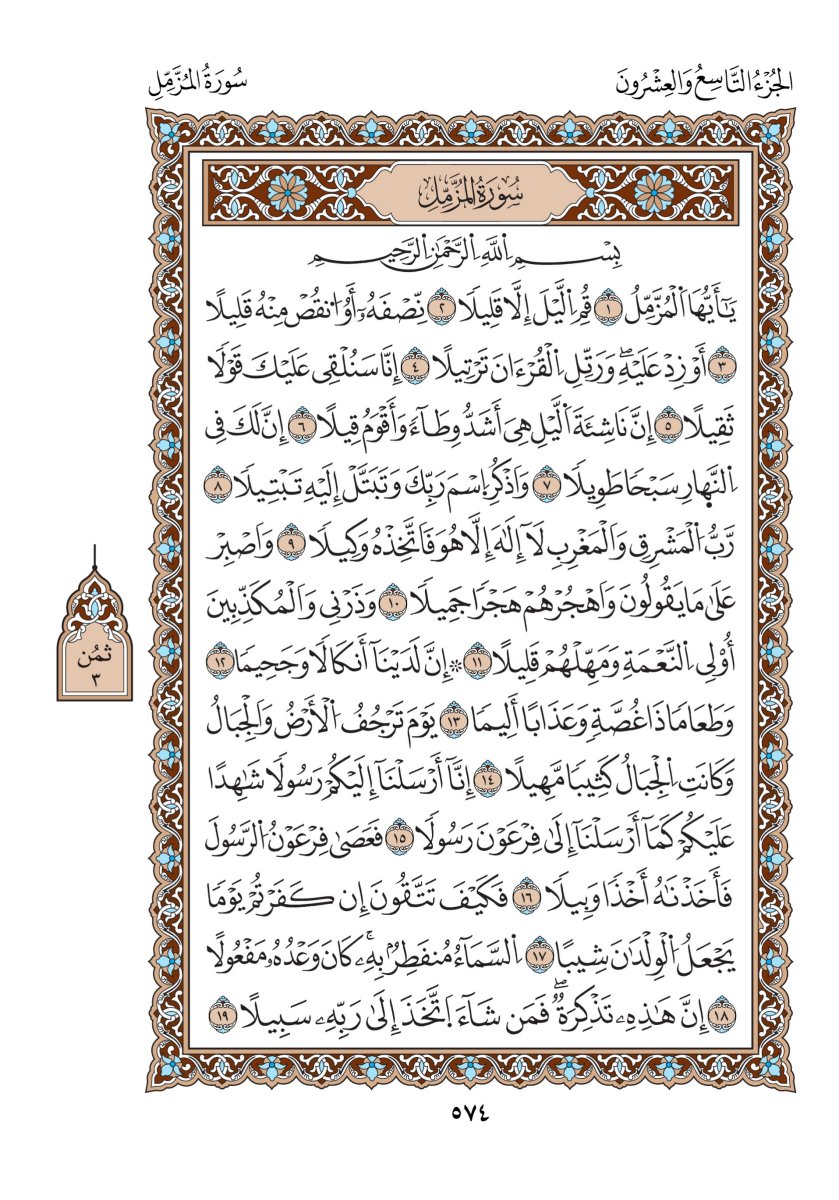 الجُزْءُ التَّاسِعُ وَالعِشْرُونَ
سُورَةُ المُزَّمِّلِ
سُورَةُ المُزَّمِّلِ
بِسْمِ اِللَّهِ اِلرَّحْمَٰنِ اِلرَّحِيمِ
يَٰٓأَيُّهَا اَلْمُزَّمِّلُ ١ قُمِ اِلَّيْلَ إِلَّا قَلِيلًا ٢ نِّصْفَهُۥٓ أَوُ اُنقُصْ مِنْهُ قَلِيلًا
٣ أَوْ زِدْ عَلَيْهِۖ وَرَتِّلِ اِلْقُرْءَانَ تَرْتِيلًا ٤ إِنَّا سَنُلْقِى عَلَيْكَ قَوْلًا
ثَقِيلًا ٥ إِنَّ نَاشِئَةَ اَلَّيْلِ هِىَ أَشَدُّ وِطَآءً وَأَقْوَمُ قِيلًا ٦ إِنَّ لَكَ فِى
اِلنَّهارِ سَبْحًا طَوِيلًا ٧ وَاَذْكُرِ اِسْمَ رَبِّكَ وَتَبَتَّلْ إِلَيْهِ تَبْتِيلًا ٨
رَّبُّ اُلْمَشْرِقِ وَالْمَغْرِبِ لَآ إِلَٰهَ إِلَّا هُوَ فَاَتَّخِذْهُ وَكِيلًا ٩ وَاَصْبِرْ
عَلَىٰ مَا يَقُولُونَ وَاَهْجُرْهُمْ هَجْرًا جَمِيلًا ١٠ وَذَرْنِى وَالْمُكَذِّبِينَ
أُوْلِى اِلنَّعْمَةِ وَمَهِّلْهُمْ قَلِيلًا ١١ ۞ إِنَّ لَدَيْنَآ أَنكَالًا وَجَحِيمًا ١٢
وَطَعَامًا ذَا غُصَّةٍ وَعَذَابًا أَلِيمًا ١٣ يَوْمَ تَرْجُفُ اُلْأَرْضُ وَالْجِبَالُ
وَكَانَتِ اِلْجِبَالُ كَثِيبًا مَّهِيلًا ١٤ إِنَّآ أَرْسَلْنَآ إِلَيْكُمْ رَسُولًا شَٰهِدًا
عَلَيْكُمْ كَمَآ أَرْسَلْنَآ إِلَىٰ فِرْعَوْنَ رَسُولًا ١٥ فَعَصَىٰ فِرْعَوْنُ اُلرَّسُولَ
فَأَخَذْنَٰهُ أَخْذًا وَبِيلًا ١٦ فَكَيْفَ تَتَّقُونَ إِن كَفَرْتُمْ يَوْمًا
يَجْعَلُ اُلْوِلْدَٰنَ شِيبًا ١٧ اِلسَّمَآءُ مُنفَطِرٌۢ بِهِۦۚ كَانَ وَعْدُهُۥ مَفْعُولًا
١٨ إِنَّ هَٰذِهِۦ تَذْكِرَةٌۖ فَمَن شَآءَ اَتَّخَذَ إِلَىٰ رَبِّهِۦ سَبِيلًا ١٩
ثُمُن
٣
٥٧٤